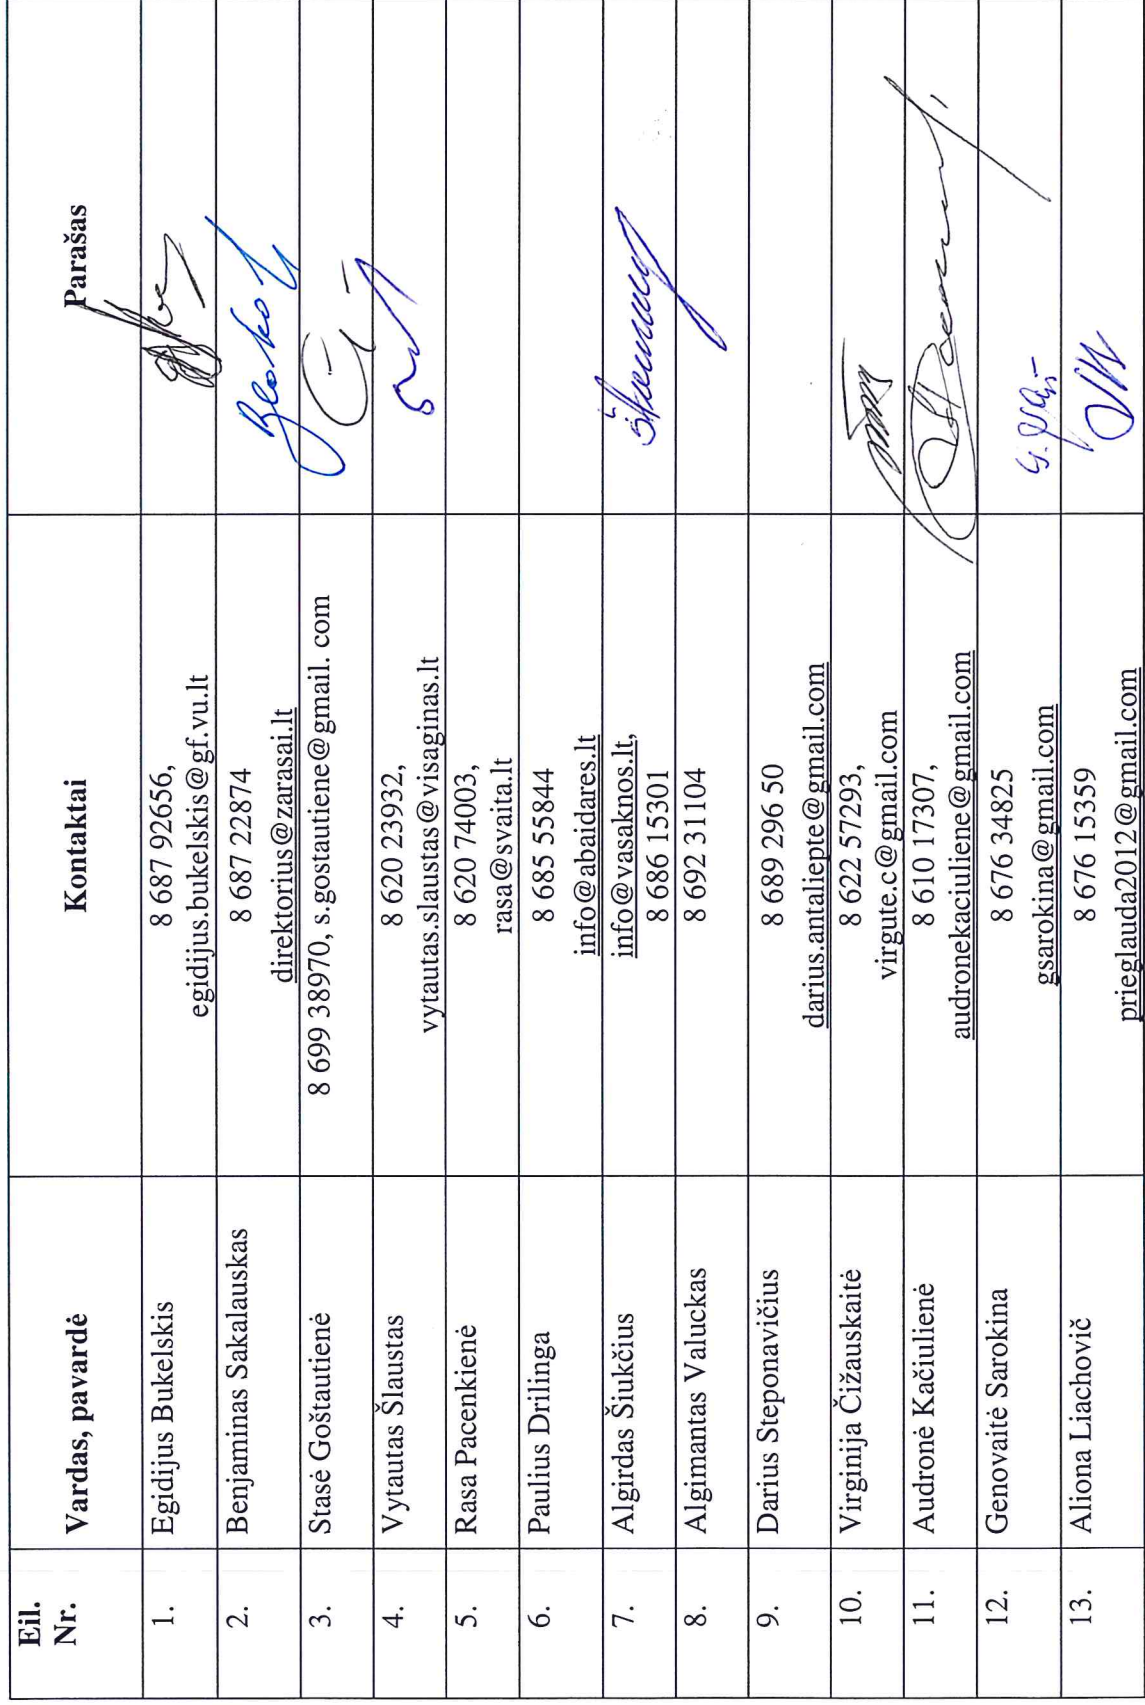 Eil.
Nr.
Vardas, pavardė
Kontaktai
Parašas
1.
Egidijus Bukelskis
8 687 92656,
egidijus.bukelskis@gf.vu.lt
2.
Benjaminas Sakalauskas
8 687 22874
direktorius@zarasai.lt
3.
Stasė Goštautienė
8 699 38970, s.gostautiene@gmail. com
4.
Vytautas Šlaustas
8 620 23932,
vytautas.slaustas@visaginas.lt
5.
Rasa Pacenkienė
8 620 74003,
rasa@svaita.lt
6.
Paulius Drilinga
8 685 55844
info@abaidares.lt
7.
Algirdas Šiukščius
info@vasaknos.lt,
8 686 15301
8.
Algimantas Valuckas
8 692 31104
9.
Darius Steponavičius
8 689 296 50
darius.antaliepte@gmail.com
10.
Virginija Čižauskaitė
8 622 57293,
virgute.c@gmail.com
11.
Audronė Kačiulienė
8 610 17307,
audronekaciuliene@gmail.com
12.
Genovaitė Sarokina
8 676 34825
gsarokina@gmail.com
13.
Aliona Liachovič
8 676 15359
prieglauda2012@gmail.com